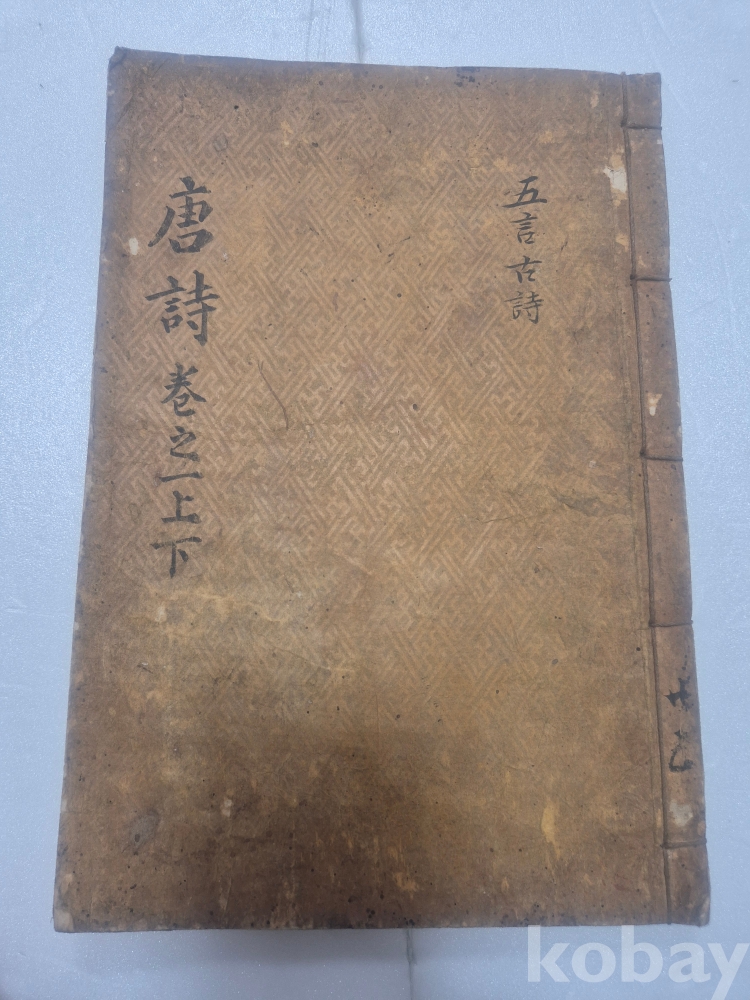 五言古詩
唐詩 卷之一上下
kobay